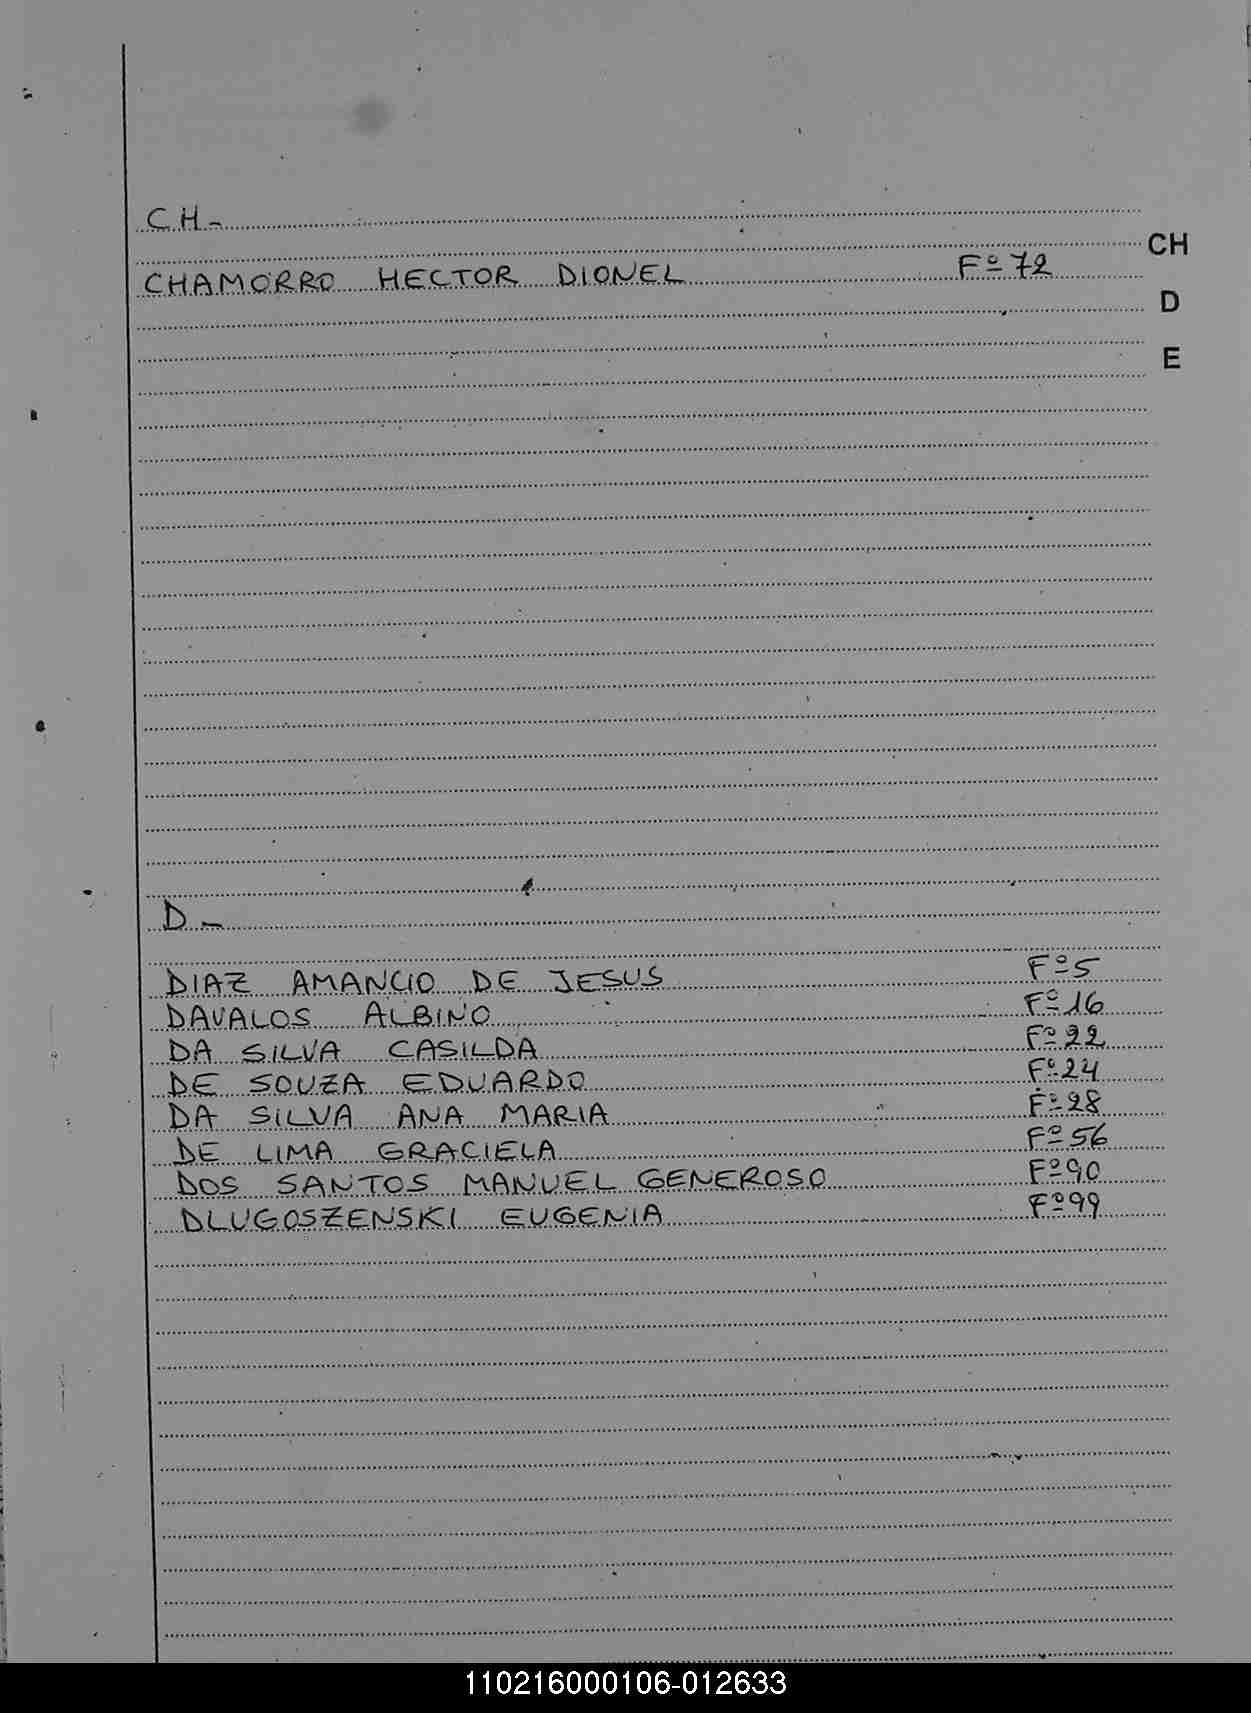 CH-
CH
CHAMORRO HECTOR DIONEL Fº 72
D
E
D-
DIAZ AMANCIO DE JESUS Fº 5
DAVALOS ALBINO Fº 16
DA SILVA CASILDA Fº 22
DE SOUZA EDUARDO Fº 24
DA SILVA ANA MARIA Fº 28
DE LIMA GRACIELA Fº 56
DOS SANTOS MANUEL GENEROSO Fº 90
DLUGOSZENSKI EUGENIA Fº 99
110216000106-012633